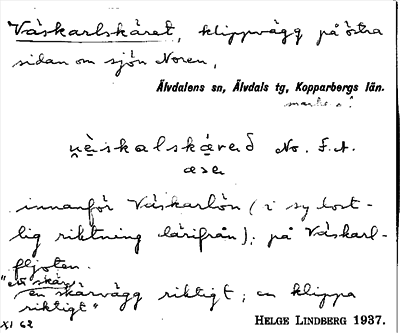 Väskarlskäret, klippvägg på östra
sidan om sjön Noren,
Älvdalens sn, Älvdals tg, Kopparbergs län.
marke a!
u̯ä̀skalskäreð No. F.A.
aser
innanför Väskarlön (i sydost-
lig riktning därifrån), på Väskarl-
fljoten.
"ett skär
en skärvägg riktigt; en klippa
riktigt"
XI 62
HELGE LINDBERG 1937.